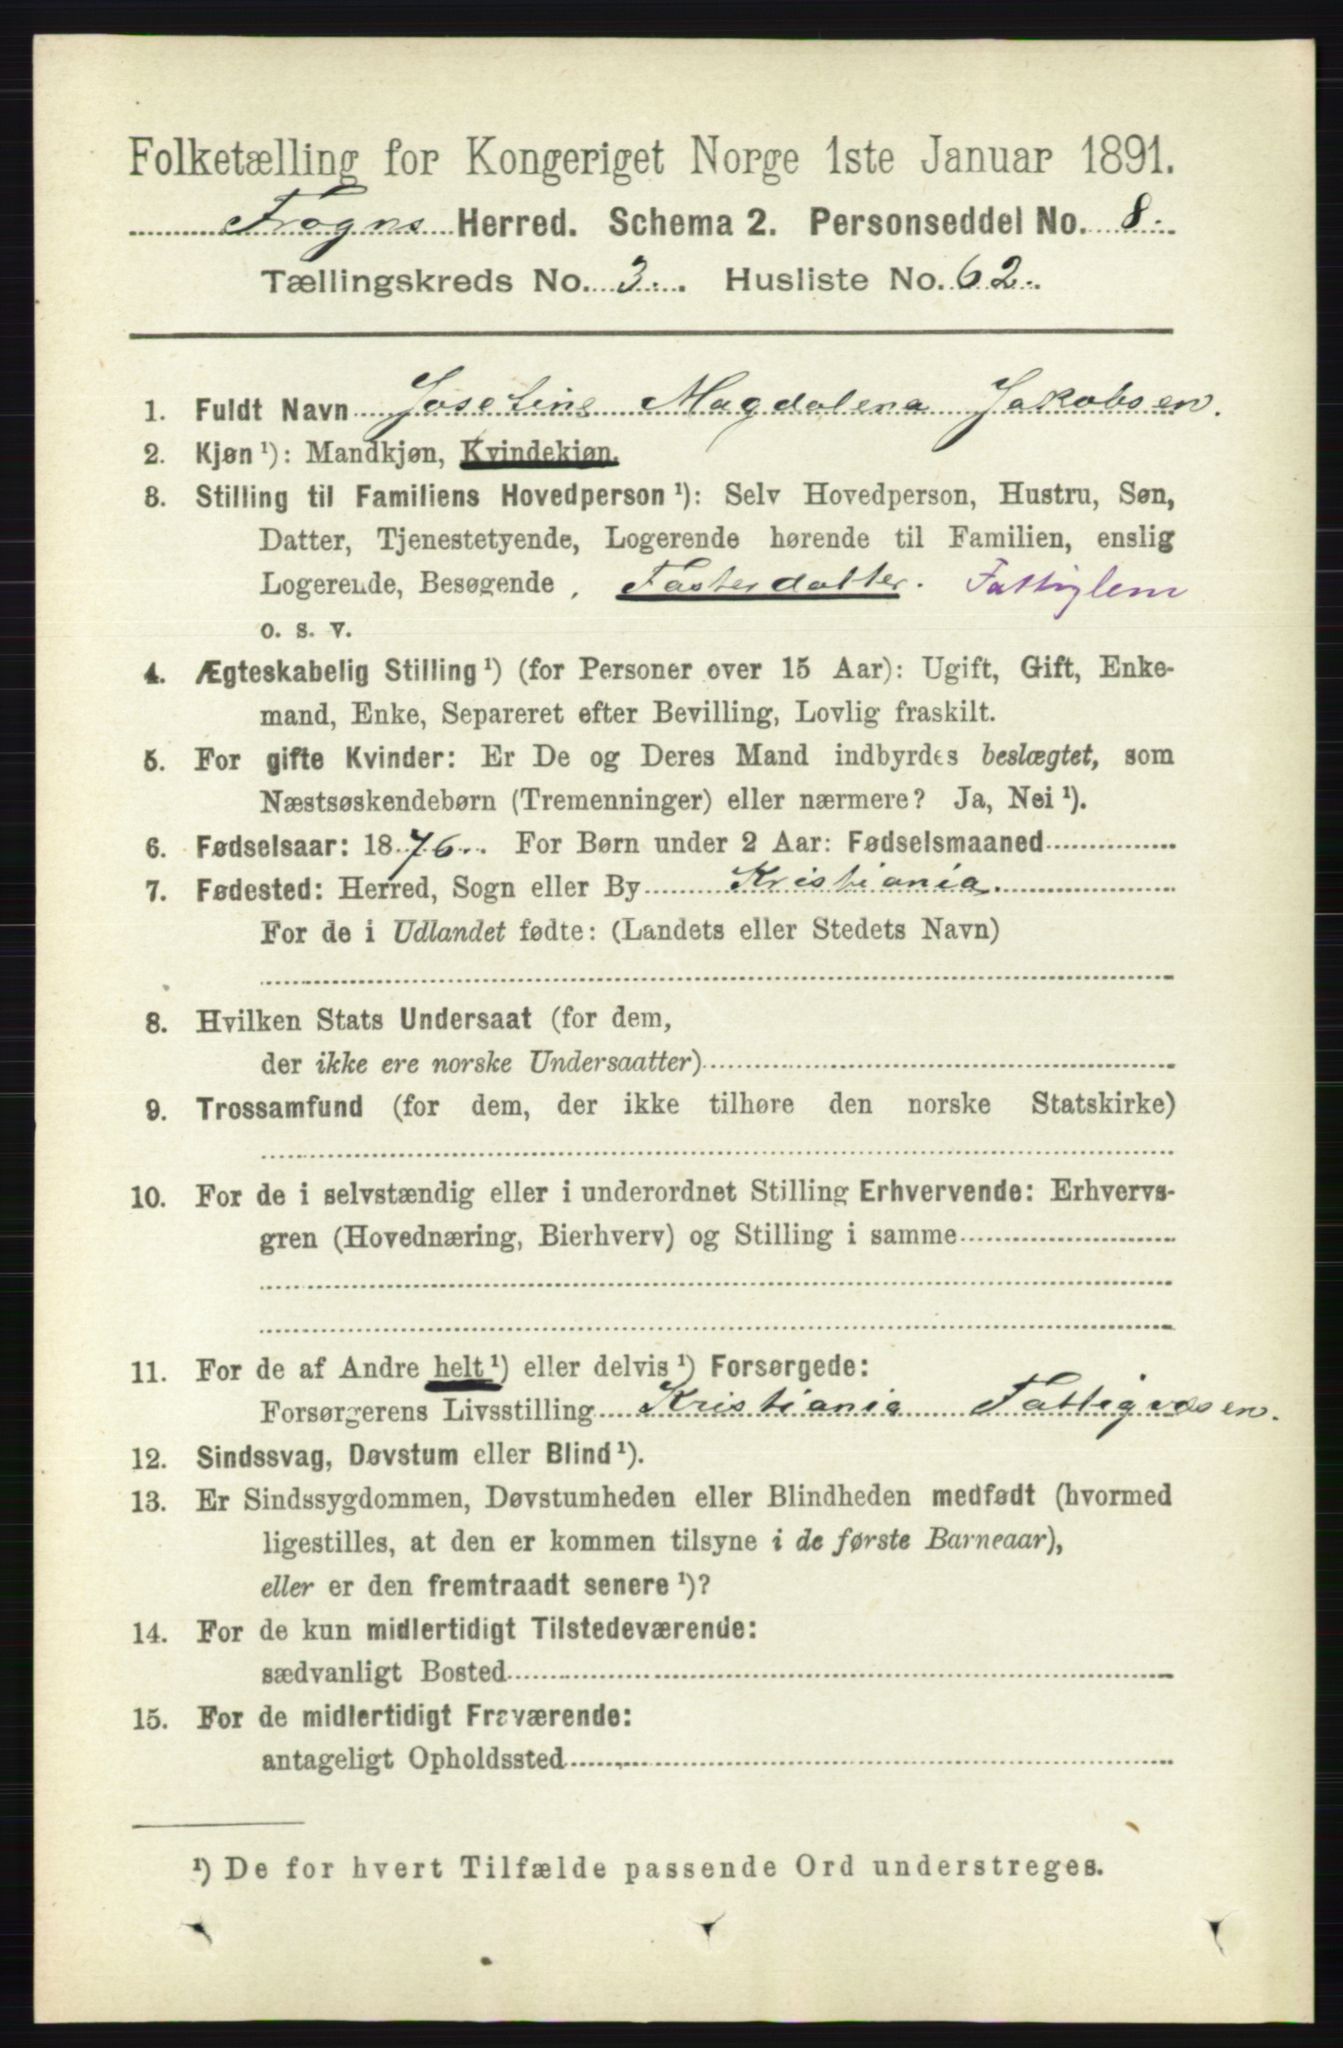 Folketælling for Kongeriget Norge 1ste Januar 1891.
Frogns Herred. Schema 2. Personseddel No. 8.
Tællingskreds No. 3. Husliste No. 62.
1. Fuldt Navn Josefine Magdalena Jakobsen.
2. Kjøn ¹): Mandkjøn, Kvindekjøn.
3. Stilling til Familiens Hovedperson ¹): Selv Hovedperson, Hustru, Søn,
Datter, Tjenestetyende, Logerende hørende til Familien, enslig
Logerende, Besøgende, Fosterdatter. Fattiglem
o. s. v.
4. Ægteskabelig Stilling ¹) (for Personer over 15 Aar): Ugift, Gift, Enke-
mand, Enke, Separeret efter Bevilling, Lovlig fraskilt.
5. For gifte Kvinder: Er De og Deres Mand indbyrdes beslægtet, som
Næstsøskendebørn (Tremenninger) eller nærmere? Ja, Nei ¹).
6. Fødselsaar: 1876. For Børn under 2 Aar: Fødselsmaaned
7. Fødested: Herred, Sogn eller By Kristiania.
For de i Udlandet fødte: (Landets eller Stedets Navn)
8. Hvilken Stats Undersaat (for dem,
der ikke ere norske Undersaatter)
9. Trossamfund (for dem, der ikke tilhøre den norske Statskirke)
10. For de i selvstændig eller i underordnet Stilling Erhvervende: Erhvervs-
gren (Hovednæring, Bierhverv) og Stilling i samme
11. For de af Andre helt ¹) eller delvis ¹) Forsørgede:
Forsørgerens Livsstilling Kristiania Fattigvæsen.
12. Sindssvag, Døvstum eller Blind ¹).
13. Er Sindssygdommen, Døvstumheden eller Blindheden medfødt (hvormed
ligestilles, at den er kommen tilsyne i de første Barneaar),
eller er den fremtraadt senere ¹)?
14. For de kun midlertidigt Tilstedeværende:
sædvanligt Bosted
15. For de midlertidigt Fraværende:
antageligt Opholdssted
¹) De for hvert Tilfælde passende Ord understreges.